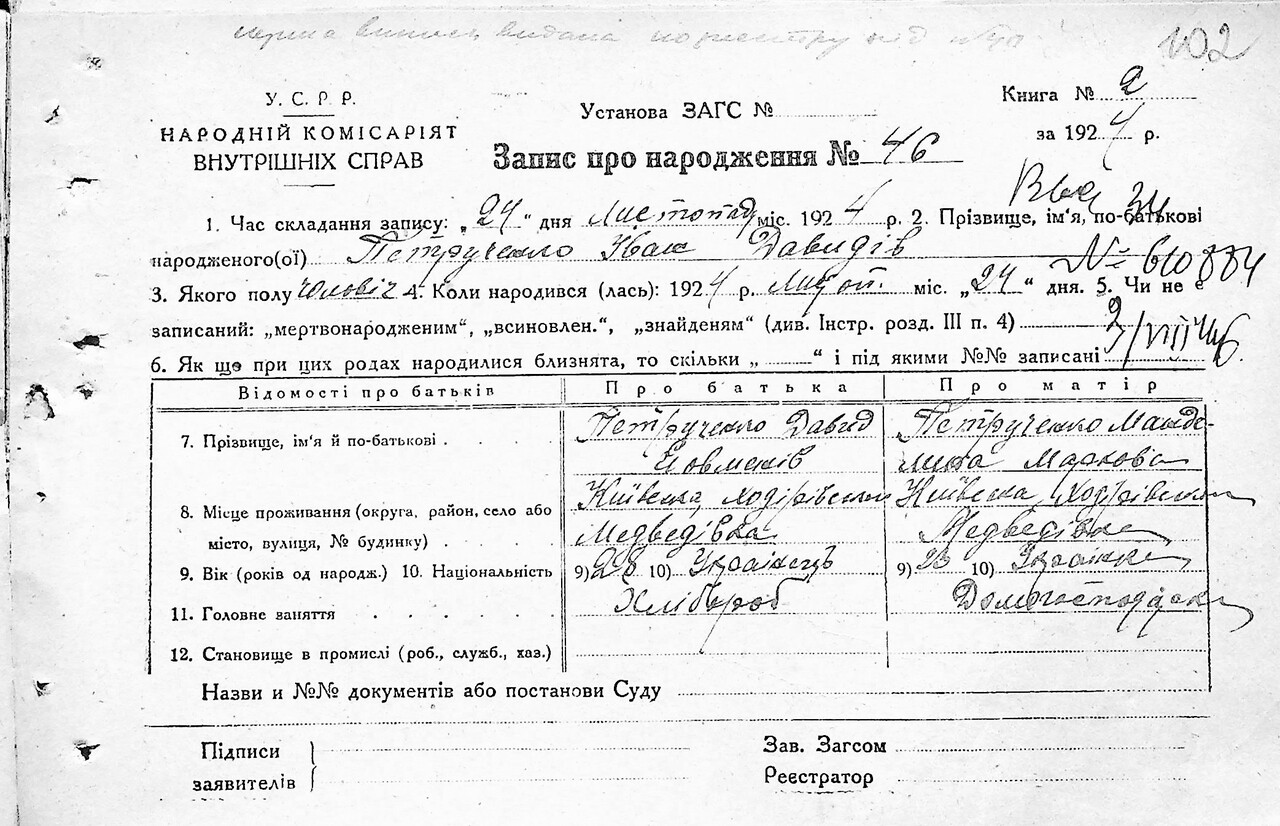 102
У. С. Р. Р.
НАРОДНІЙ КОМІСАРІЯТ
ВНУТРІШНІХ СПРАВ
Установа ЗАГС №
Книга № 2
за 1924 р.
Запис про народження № 46
1. Час складання запису: „24“ дня Листопад міс. 1924 р. 2. Прізвище, ім'я, по-батькові
народженого(ої) Петрученко Іван Давидів
№ 610884
3. Якого полу Чоловіч 4. Коли народився (лась): 1924 р. Листоп. міс. „24“ дня. 5. Чи не є
записаний: „мертвонародженим“, „всиновлен.“, „знайденям“ (див. Інстр. розд. III п. 4)
2/VIII 46.
6. Як що при цих родах народилися близнята, то скільки „ “ і під якими №№ записані
Відомості про батьків Про батька Про матір
7. Прізвище, ім'я й по-батькові . . . . . Петрученко Давид Петрученко Магде-
лина Маркова
8. Місце проживання (округа, район, село або Київська, Ходорівськ Київська, Ходорівськ
місто, вулиця, № будинку) . . . . . Медведівка Медведівка
9. Вік (років од народж.) 10. Національність 9) 28 10) Українець 9) 23 10) Українка
11. Головне заняття . . . . . Хлібороб Домогосподарка
12. Становище в промислі (роб., служб., хаз.)
Назви и №№ документів або постанови Суду
Підписи
заявителів
Зав. Загсом
Реєстратор